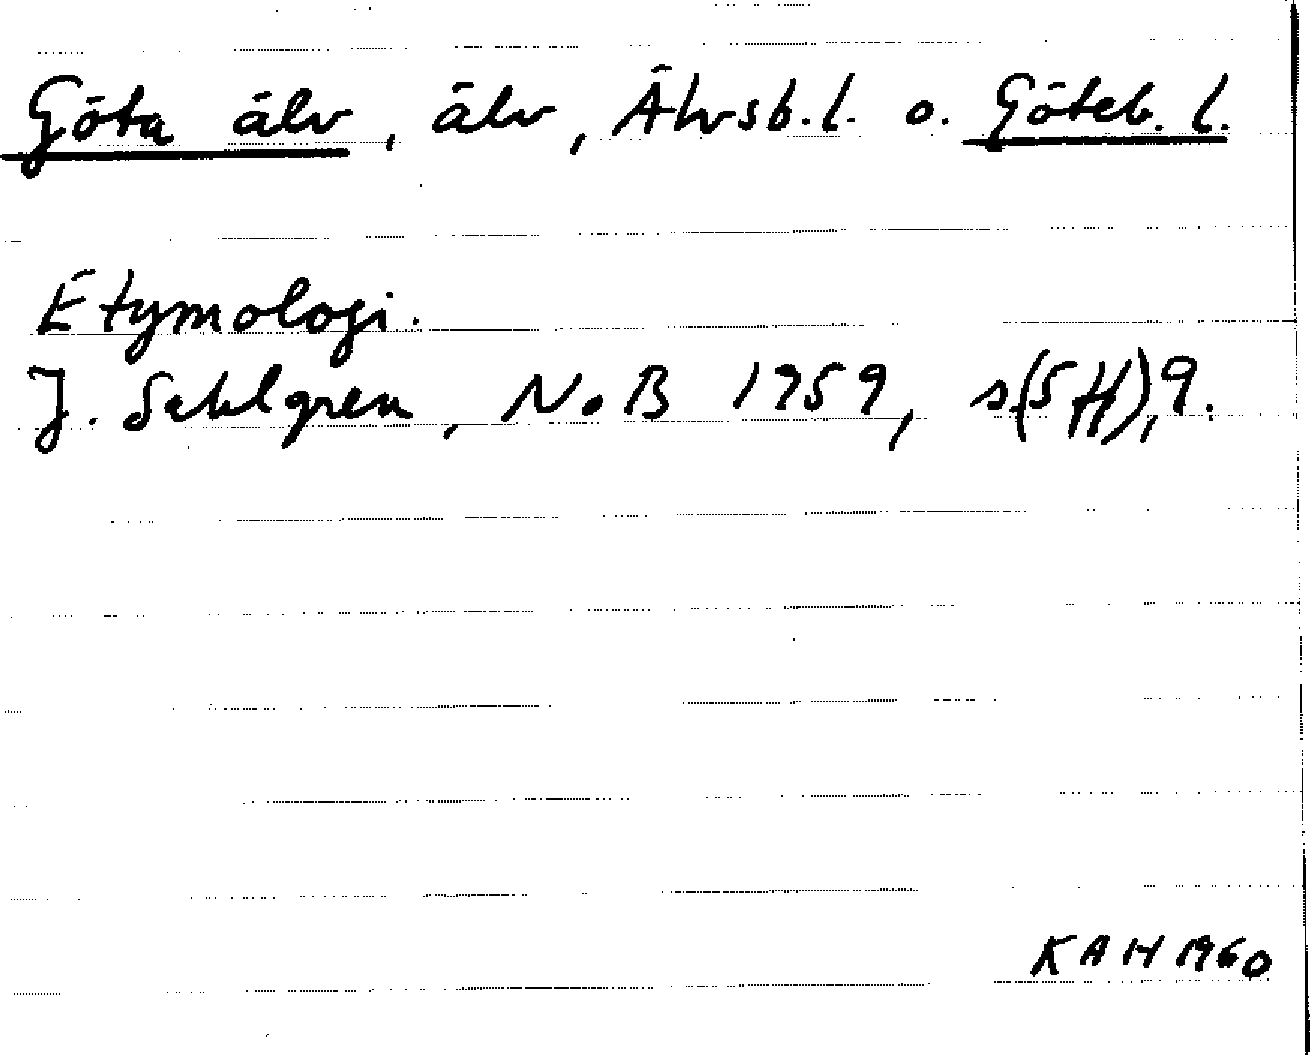 Göta älv, älv, Älvsb.l. o. Göteb. l.
Etymologi.
J. Sahlgren, NoB 1959, s.(5ff),9.
KAH 1960